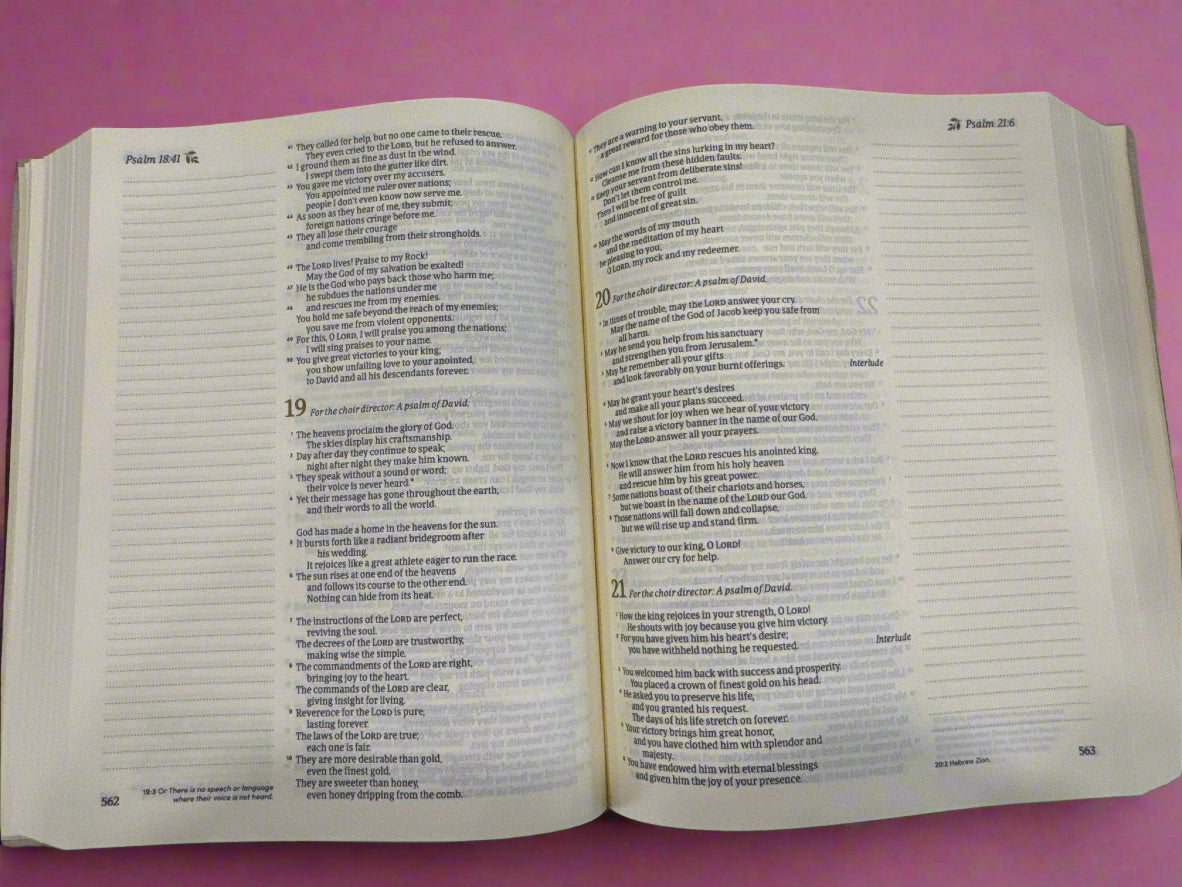 Psalm 18:41
41 They called for help, but no one came to their rescue.
They even cried to the LORD, but he refused to answer.
42 I ground them as fine as dust in the wind.
I swept them into the gutter like dirt.
43 You gave me victory over my accusers.
You appointed me ruler over nations;
people I don't even know now serve me.
44 As soon as they hear of me, they submit;
foreign nations cringe before me.
45 They all lose their courage
and come trembling from their strongholds.
46 The LORD lives! Praise to my Rock!
May the God of my salvation be exalted!
47 He is the God who pays back those who harm me;
he subdues the nations under me
48 and rescues me from my enemies.
You hold me safe beyond the reach of my enemies;
you save me from violent opponents.
49 For this, O LORD, I will praise you among the nations;
I will sing praises to your name.
50 You give great victories to your king;
you show unfailing love to your anointed,
to David and all his descendants forever.
19 For the choir director: A psalm of David.
1 The heavens proclaim the glory of God.
The skies display his craftsmanship.
2 Day after day they continue to speak;
night after night they make him known.
3 They speak without a sound or word;
their voice is never heard.*
4 Yet their message has gone throughout the earth,
and their words to all the world.
God has made a home in the heavens for the sun.
5 It bursts forth like a radiant bridegroom after
his wedding.
It rejoices like a great athlete eager to run the race.
6 The sun rises at one end of the heavens
and follows its course to the other end.
Nothing can hide from its heat.
7 The instructions of the LORD are perfect,
reviving the soul.
The decrees of the LORD are trustworthy,
making wise the simple.
8 The commandments of the LORD are right,
bringing joy to the heart.
The commands of the LORD are clear,
giving insight for living.
9 Reverence for the LORD is pure,
lasting forever.
The laws of the LORD are true;
each one is fair.
10 They are more desirable than gold,
even the finest gold.
They are sweeter than honey,
even honey dripping from the comb.
562
19:3 Or There is no speech or language
where their voice is not heard.
Psalm 21:6
11 They are a warning to your servant,
a great reward for those who obey them.
12 How can I know all the sins lurking in my heart?
Cleanse me from these hidden faults.
13 Keep your servant from deliberate sins!
Don't let them control me.
Then I will be free of guilt
and innocent of great sin.
14 May the words of my mouth
and the meditation of my heart
be pleasing to you,
O LORD, my rock and my redeemer.
20 For the choir director: A psalm of David.
1 In times of trouble, may the LORD answer your cry.
May the name of the God of Jacob keep you safe from
all harm.
2 May he send you help from his sanctuary
and strengthen you from Jerusalem.*
3 May he remember all your gifts
and look favorably on your burnt offerings. Interlude
4 May he grant your heart's desires
and make all your plans succeed.
5 May we shout for joy when we hear of your victory
and raise a victory banner in the name of our God.
May the LORD answer all your prayers.
6 Now I know that the LORD rescues his anointed king.
He will answer him from his holy heaven
and rescue him by his great power.
7 Some nations boast of their chariots and horses,
but we boast in the name of the LORD our God.
8 Those nations will fall down and collapse,
but we will rise up and stand firm.
9 Give victory to our king, O LORD!
Answer our cry for help.
21 For the choir director: A psalm of David.
1 How the king rejoices in your strength, O LORD!
He shouts with joy because you give him victory.
2 For you have given him his heart's desire;
you have withheld nothing he requested. Interlude
3 You welcomed him back with success and prosperity.
You placed a crown of finest gold on his head.
4 He asked you to preserve his life,
and you granted his request.
The days of his life stretch on forever.
5 Your victory brings him great honor,
and you have clothed him with splendor and
majesty.
6 You have endowed him with eternal blessings
and given him the joy of your presence.
20:2 Hebrew Zion.
563